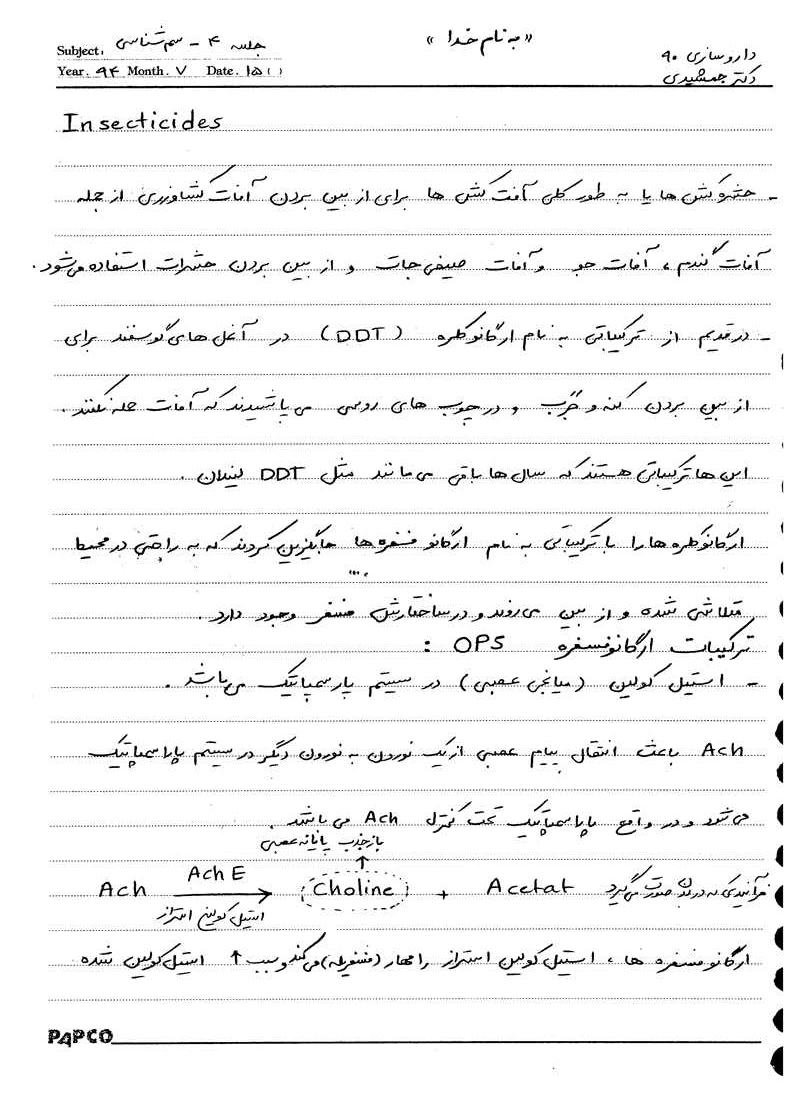 «به نام خدا»
Subject. جلسه ۴ - سم شناسی
Year. ۹۴ Month. ۷ Date. ۱۵()
داروسازی ۹۰
دکتر جمشیدی
Insecticides
- حشره کش ها یا به طور کلی آفت کش ها برای از بین بردن آفات کشاورزی از جمله
آفات گندم، آفات جو و آفات صیفی جات و از بین بردن حشرات استفاده می شود.
- در قدیم از ترکیباتی به نام ارگانوکلره (DDT) در آغل های گوسفند برای
از بین بردن کنه و جَرَب و در چوب های روسی می پاشیدند که آفات حمله نکنند.
این ها ترکیباتی هستند که سال ها باقی می مانند مثل DDT لیندان.
ارگانوکلره ها را با ترکیباتی به نام ارگانو فسفره ها جایگزین کردند که به راحتی در محیط
متلاشی شده و از بین می روند و در ساختارشان فسفر وجود دارد.
ترکیبات ارگانوفسفره OPS :
- استیل کولین (میانجی عصبی) در سیستم پاراسمپاتیک می باشد.
Ach باعث انتقال پیام عصبی از یک نورون به نورون دیگر در سیستم پاراسمپاتیک
می شود و در واقع پاراسمپاتیک تحت کنترل Ach می باشد.
بازجذب پایانه عصبی
↑
فرآیندی که در بدن صورت می گیرد Ach AchE → Choline + Acetat
استیل کولین استراز
ارگانوفسفره ها، استیل کولین استراز را مهار (فسفریله) می کند و سبب ↑ استیل کولین شده
PAPCO